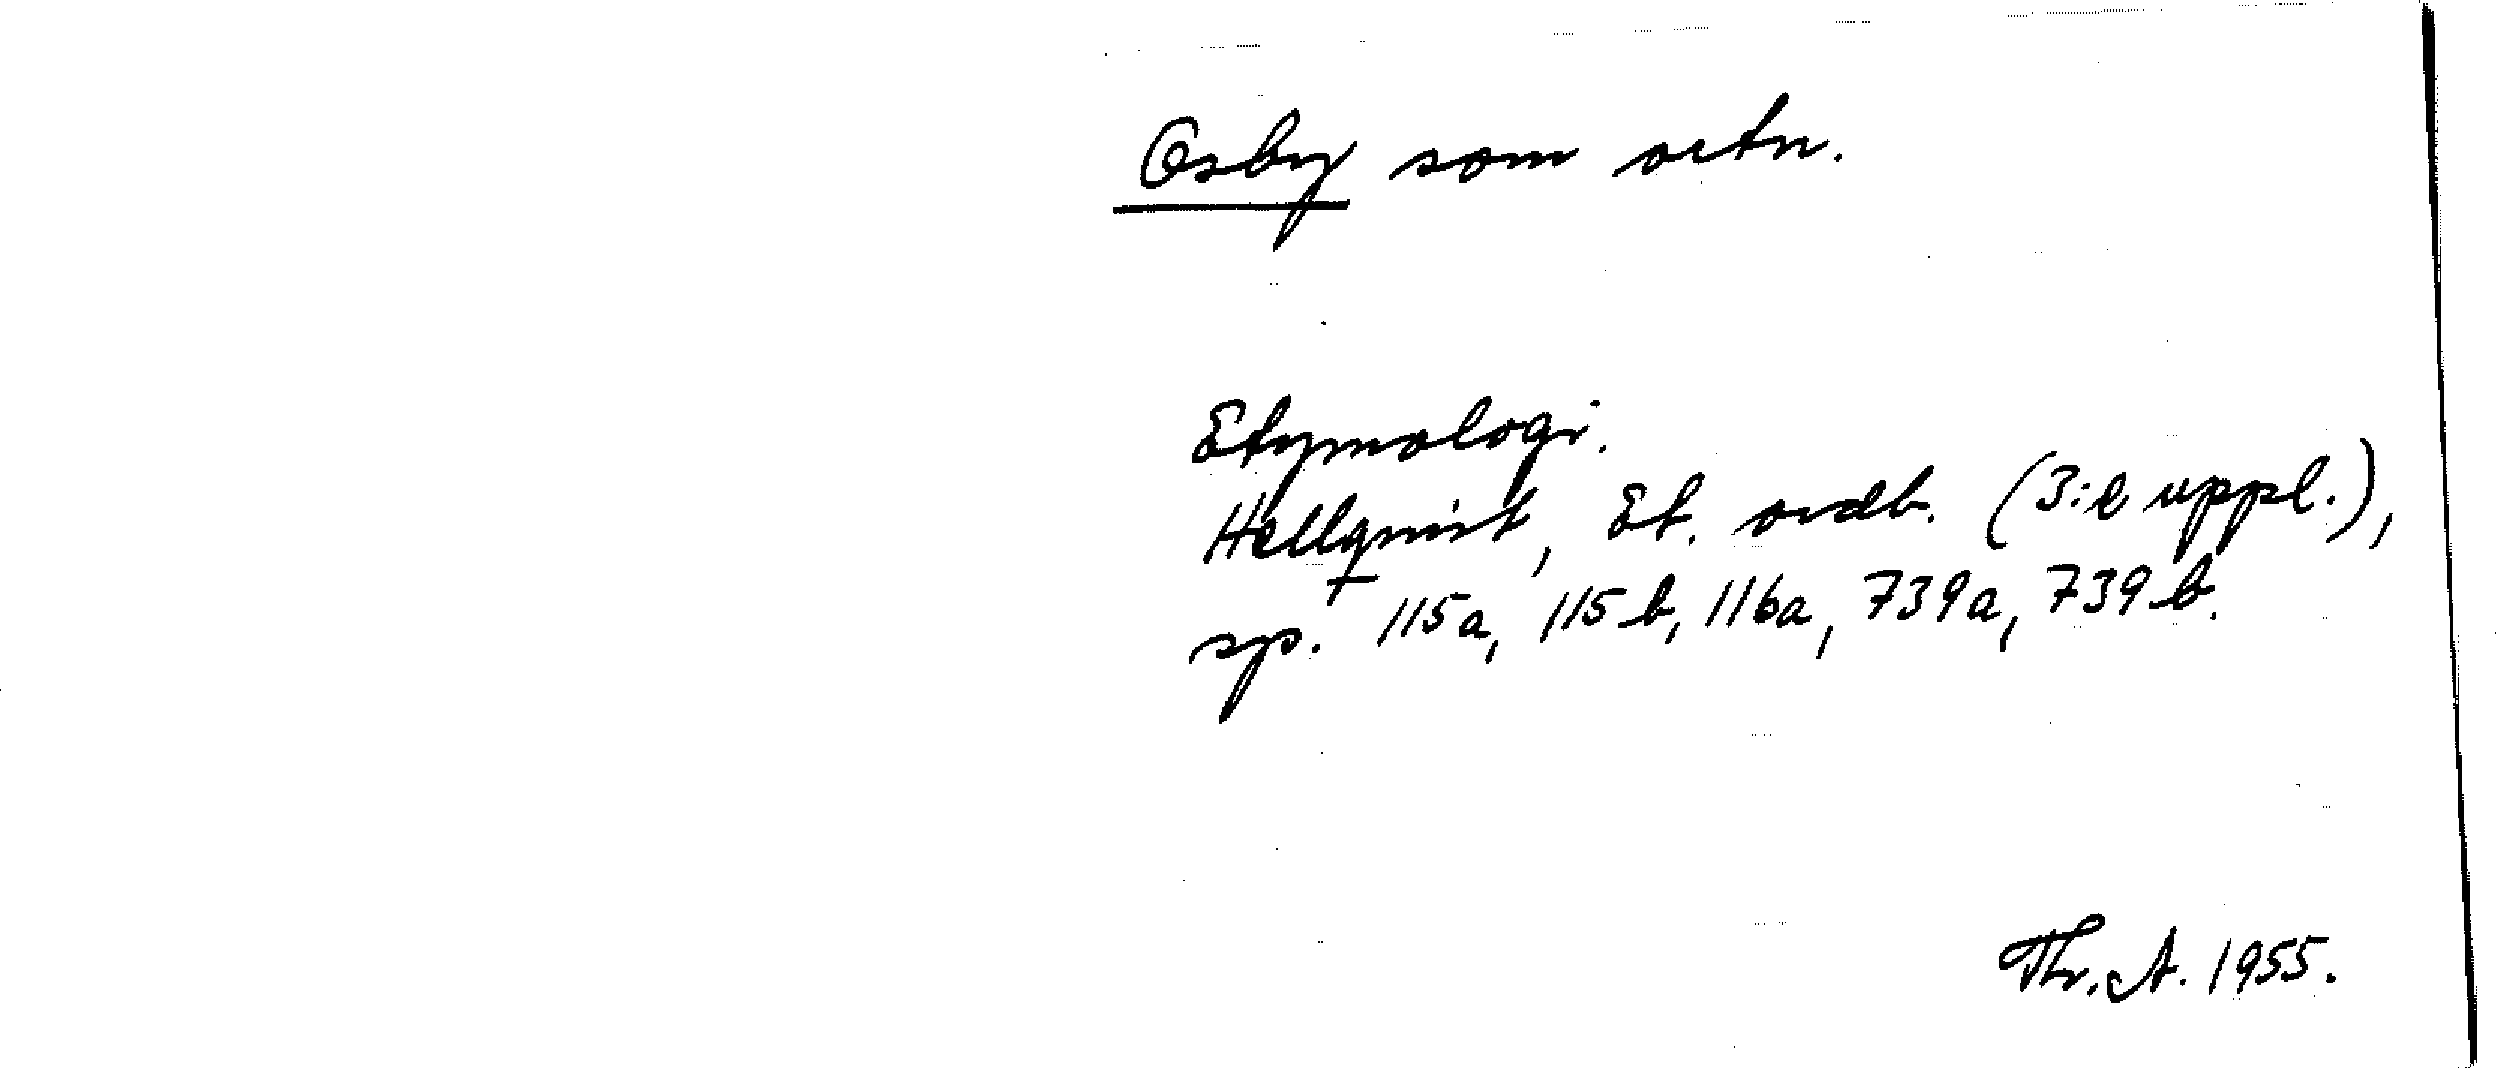 Osby som ortn.
Etymologi.
Hellquist, Et. ordb. (3:e uppl.),
sp. 115a, 115b, 116a, 739a, 739b.
Thr. A. 1955.